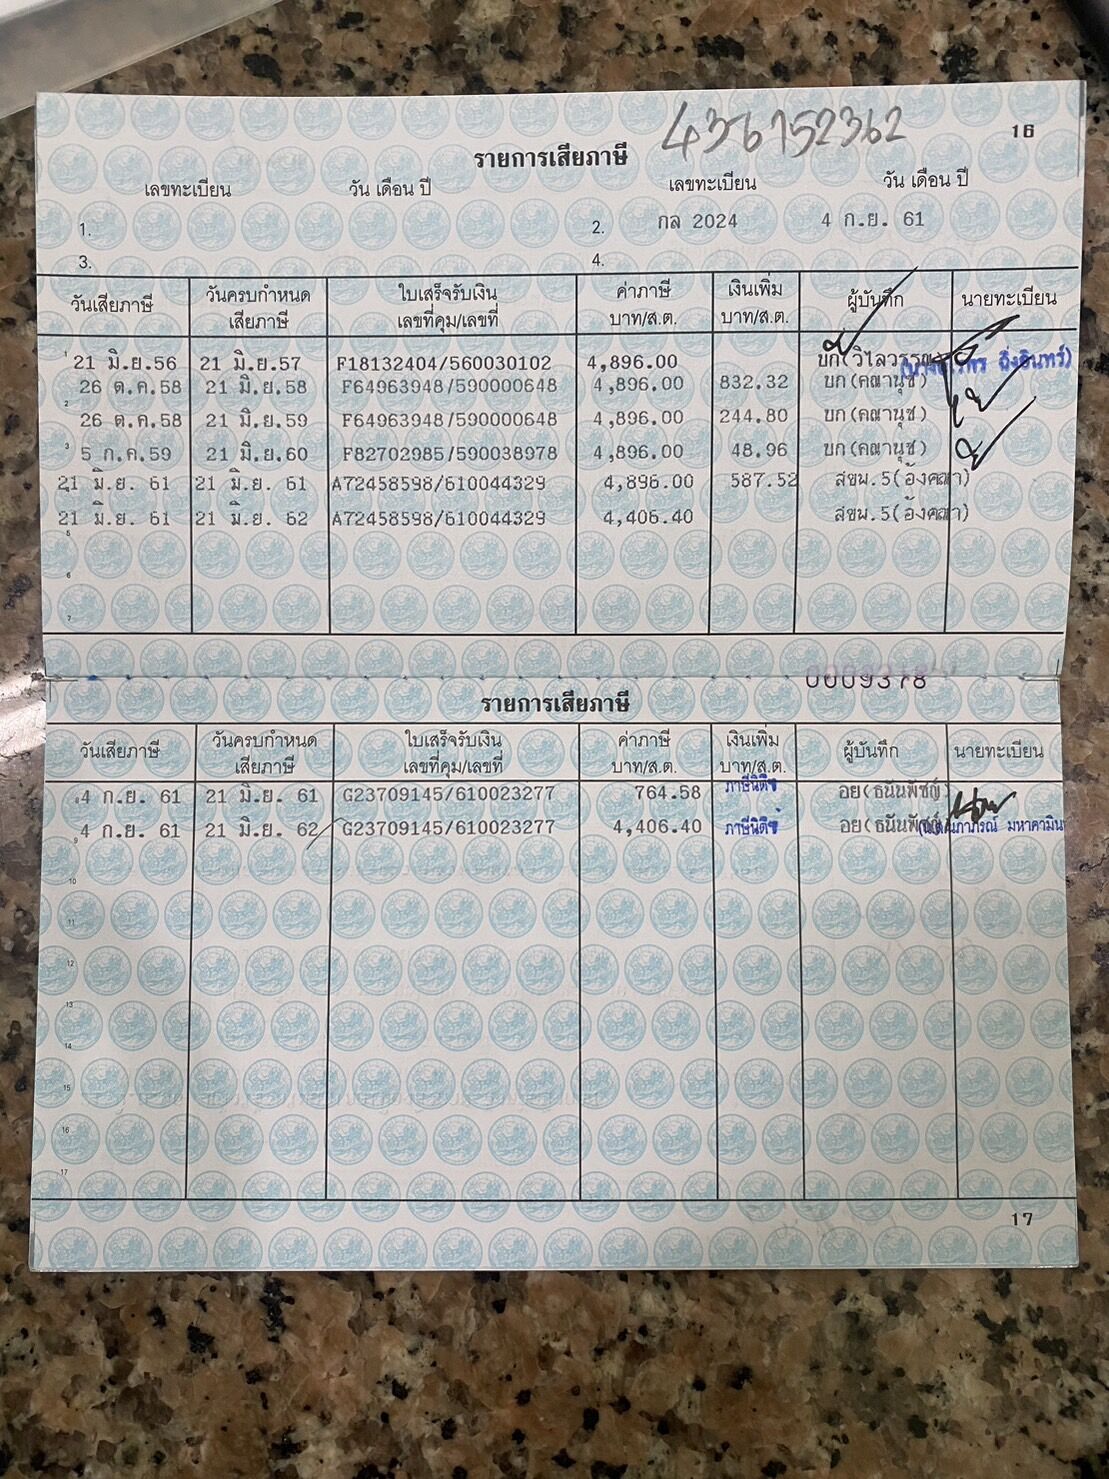 436752362
16
รายการเสียภาษี
เลขทะเบียน วัน เดือน ปี เลขทะเบียน วัน เดือน ปี
1. 2. กล 2024 4 ก.ย. 61
3. 4.
วันเสียภาษี วันครบกำหนดเสียภาษี ใบเสร็จรับเงิน เลขที่คุม/เลขที่ ค่าภาษี บาท/ส.ต. เงินเพิ่ม บาท/ส.ต. ผู้บันทึก นายทะเบียน
1 21 มิ.ย.56 21 มิ.ย.57 F18132404/560030102 4,896.00 บก(วิไลวรรณ
26 ต.ค.58 21 มิ.ย.58 F64963948/590000648 4,896.00 832.32 บก(คณานุช)
2 26 ต.ค.58 21 มิ.ย.59 F64963948/590000648 4,896.00 244.80 บก(คณานุช)
3 5 ก.ค.59 21 มิ.ย.60 F82702985/590038978 4,896.00 48.96 บก(คณานุช)
4 21 มิ.ย. 61 21 มิ.ย. 61 A72458598/610044329 4,896.00 587.52 สขพ.5(อังคณา)
21 มิ.ย. 61 21 มิ.ย. 62 A72458598/610044329 4,406.40 สขพ.5(อังคณา)
5
6
7
0009378
รายการเสียภาษี
วันเสียภาษี วันครบกำหนดเสียภาษี ใบเสร็จรับเงิน เลขที่คุม/เลขที่ ค่าภาษี บาท/ส.ต. เงินเพิ่ม บาท/ส.ต. ผู้บันทึก นายทะเบียน
8 4 ก.ย. 61 21 มิ.ย. 61 G23709145/610023277 764.58 อย(ธนันพัชญ์)
4 ก.ย. 61 21 มิ.ย. 62 G23709145/610023277 4,406.40 อย(ธนันพัชญ์)
9
10
11
12
13
14
15
16
17
17